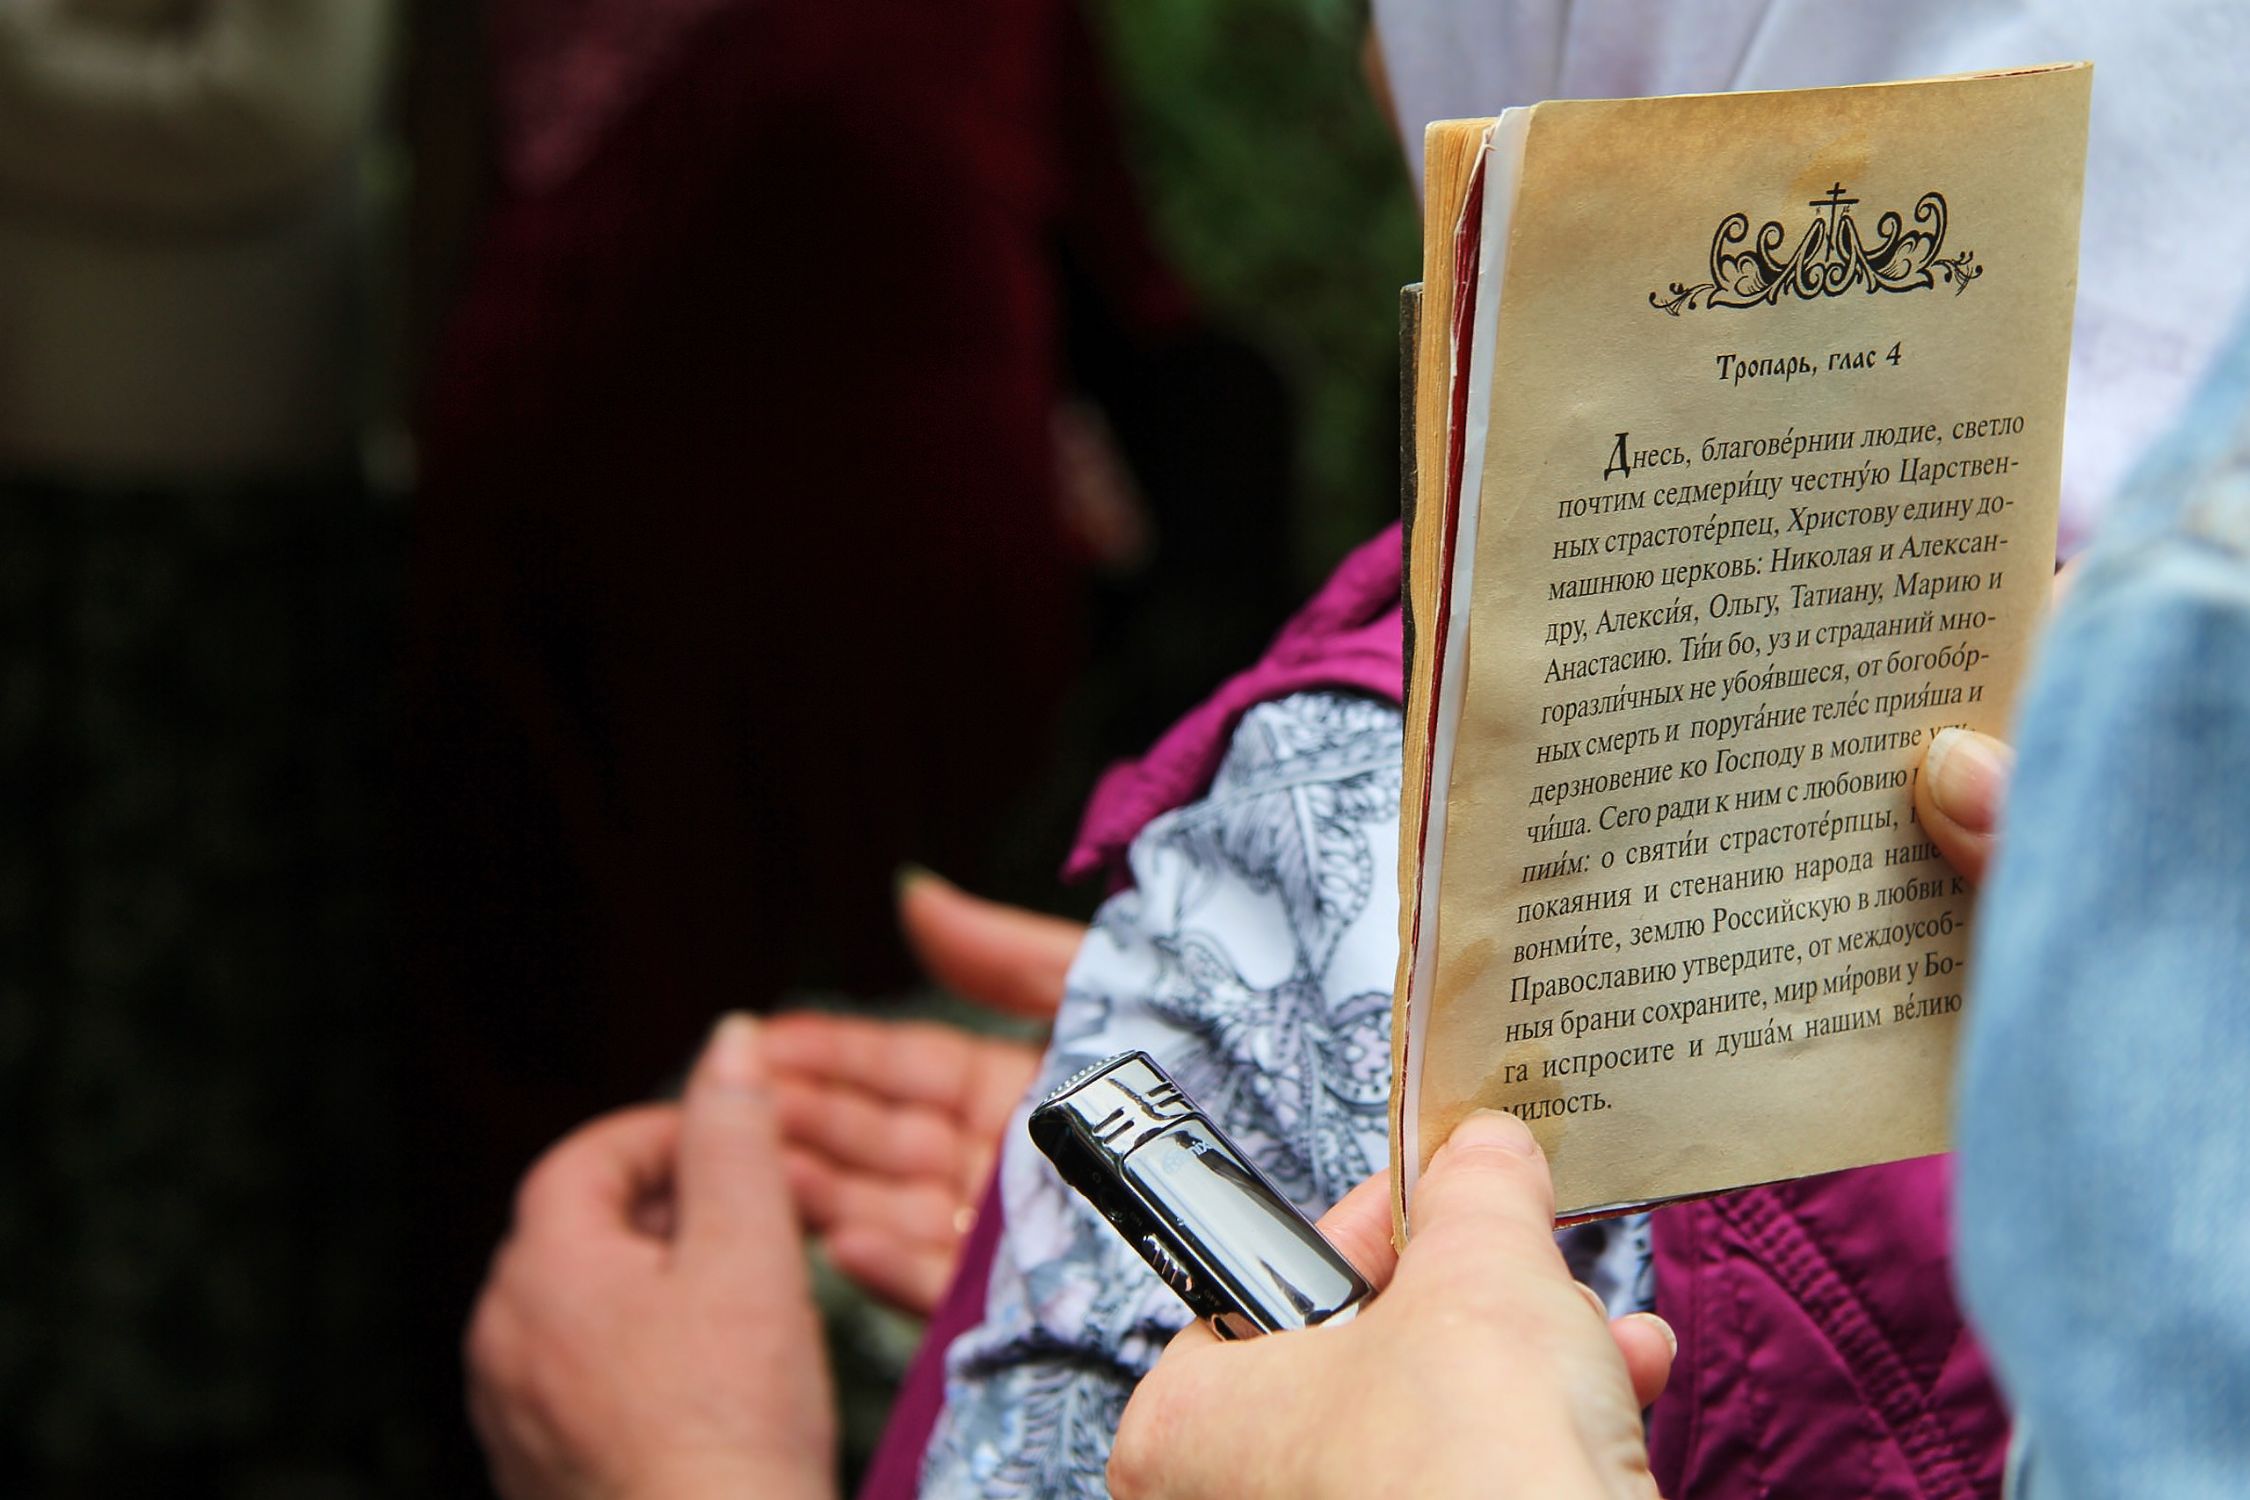 Тропарь, глас 4
Днесь, благове́рнии людие, светло
почтим седмери́цу честну́ю Царствен-
ных страстоте́рпец, Христову едину до-
машнюю церковь: Николая и Алексан-
дру, Алекси́я, Ольгу, Татиану, Марию и
Анастасию. Ти́и бо, уз и страданий мно-
горазли́чных не убоя́вшеся, от богобо́р-
ных смерть и поруга́ние теле́с прия́ша и
дерзновение ко Господу в молитве
чи́ша. Сего ради к ним с любовию
пии́м: о святи́и страстоте́рпцы,
покаяния и стенанию народа
вонми́те, землю Российскую в любви к
Православию утвердите, от междоусоб-
ныя брани сохраните, мир ми́рови у Бо-
га испросите и душа́м нашим ве́лию
милость.